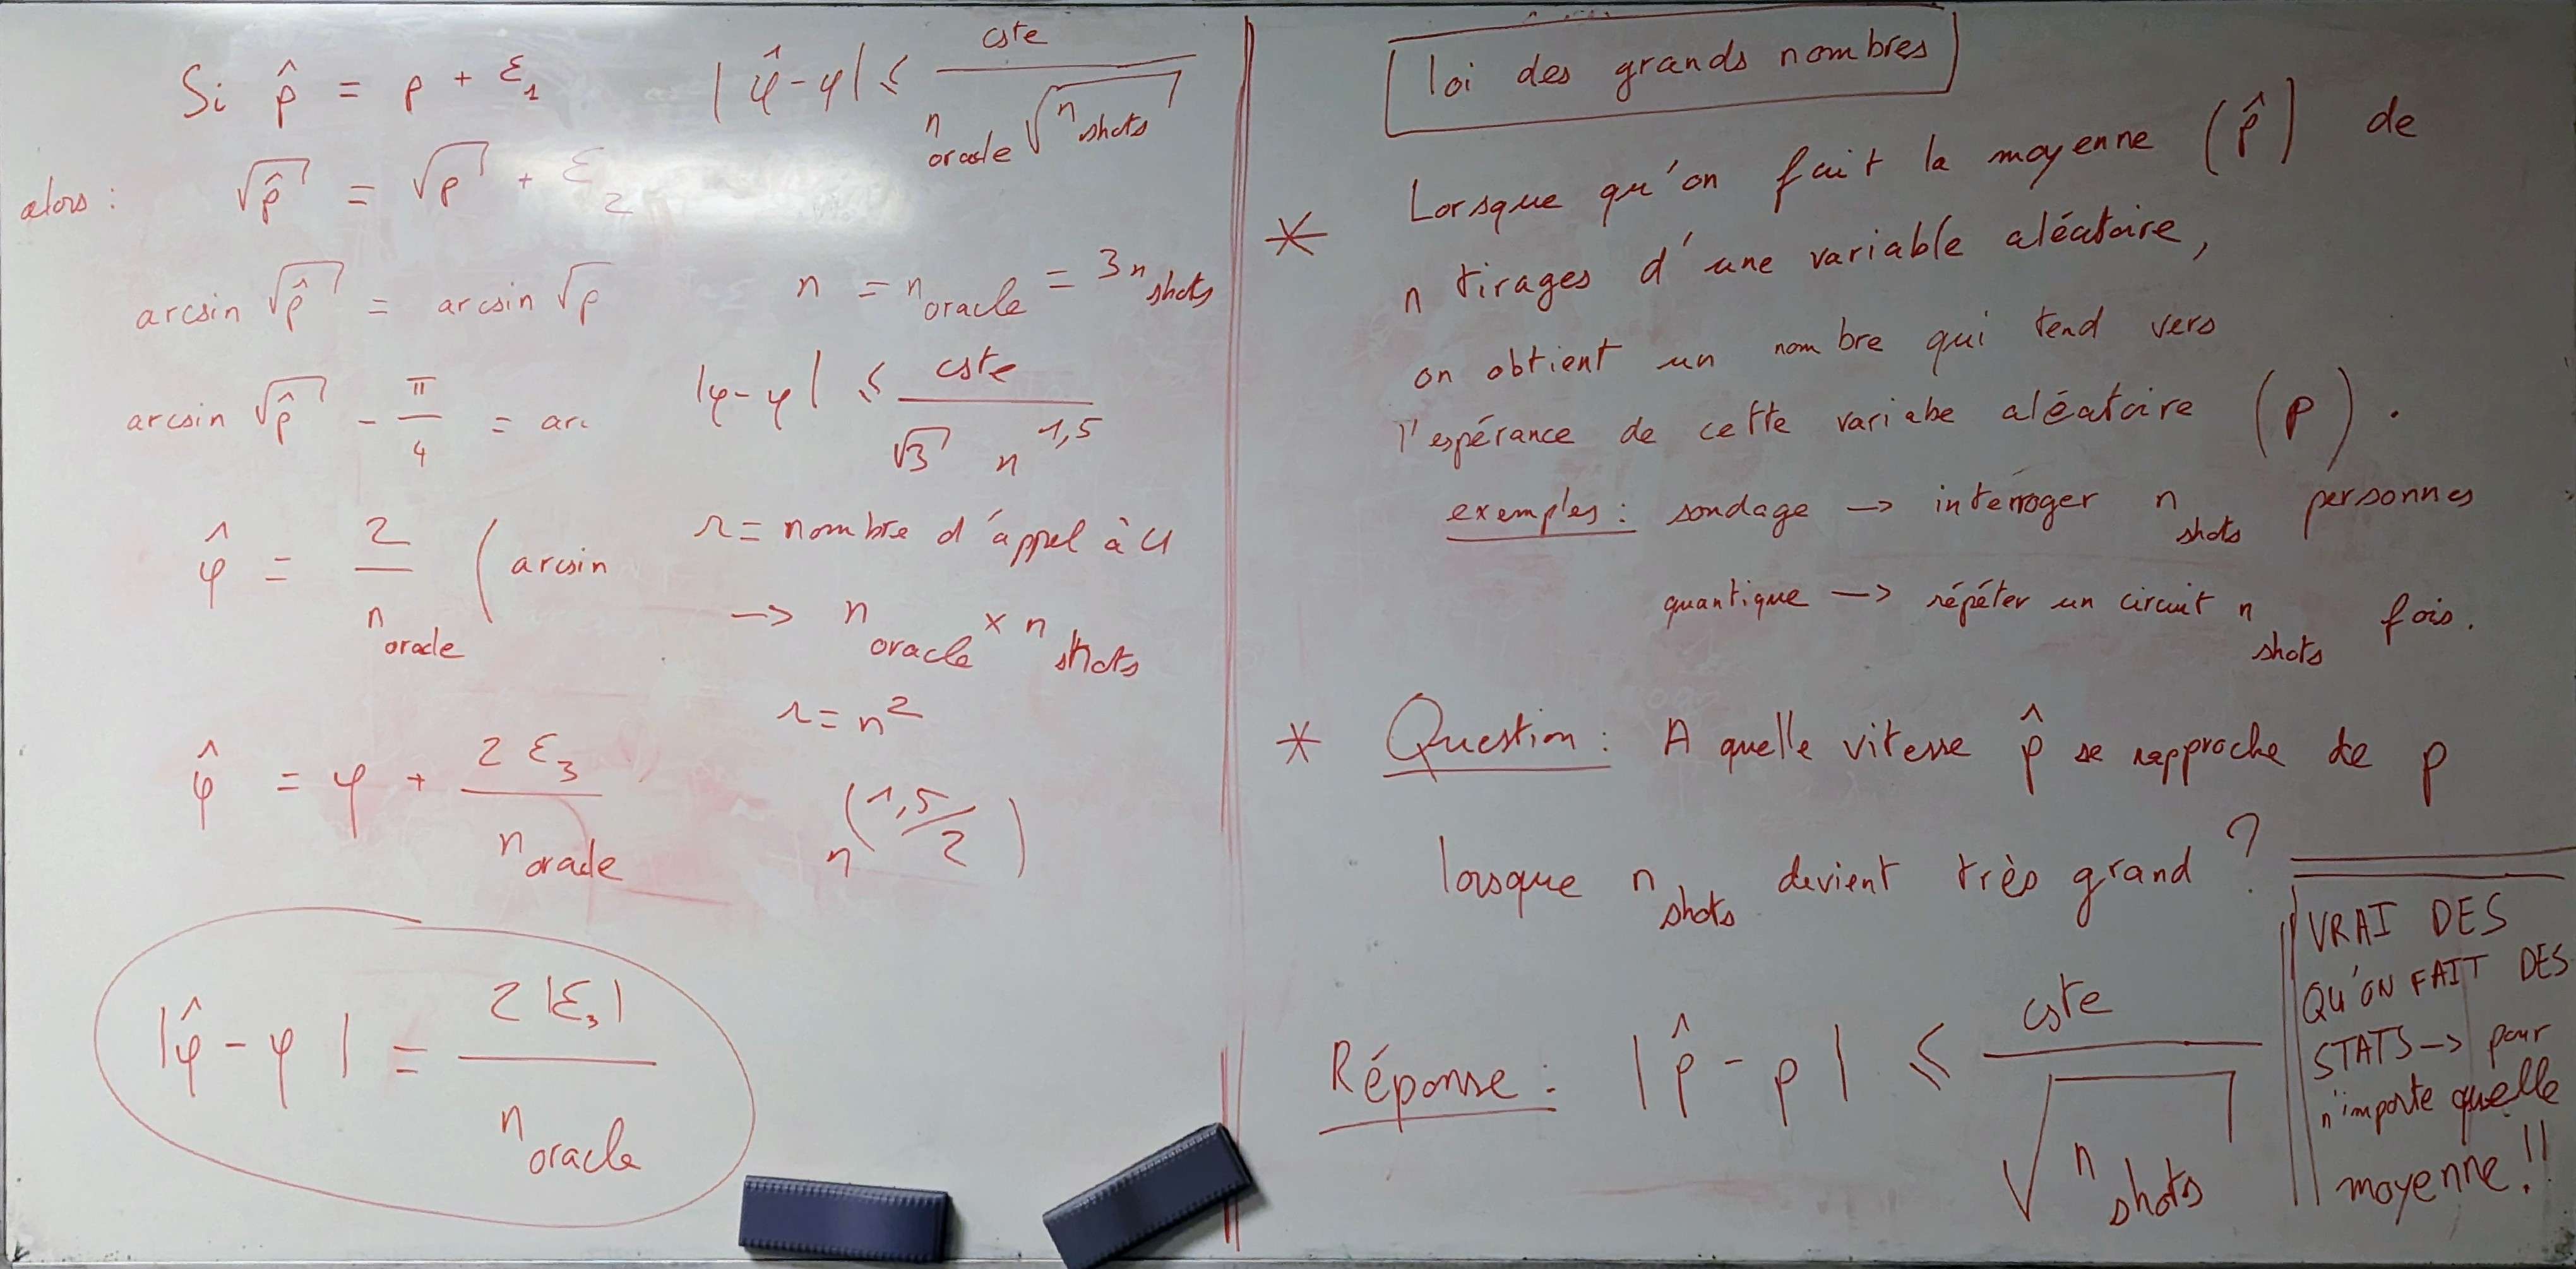 Si p̂ = p + ε₁
alors : √p̂ = √p + ε₂
arcsin √p̂ = arcsin √p
arcsin √p̂ - π/4 = arc
φ̂ = 2/n_oracle ( arcsin
φ̂ = φ + 2 ε₃ / n_oracle
|φ̂ - φ| = 2 |ε₃| / n_oracle
|φ̂ - φ| ≤ cste / n_oracle √n_shots
n = n_oracle = 3 n_shots
|φ - φ| ≤ cste / √3 n^1,5
r = nombre d'appel à U
→ n_oracle × n_shots
r = n²
n^(1,5/2)
loi des grands nombres
* Lorsque qu'on fait la moyenne (p̂) de
n tirages d'une variable aléatoire,
on obtient un nombre qui tend vers
l'espérance de cette variabe aléatoire (p).
exemples : sondage → interroger n_shots personnes
quantique → répéter un circuit n_shots fois.
* Question : A quelle vitesse p̂ se rapproche de p
lorsque n_shots devient très grand ?
Réponse : |p̂ - p| ≤ cste / √n_shots
VRAI DES
QU'ON FAIT DES
STATS → pour
n'importe quelle
moyenne !!